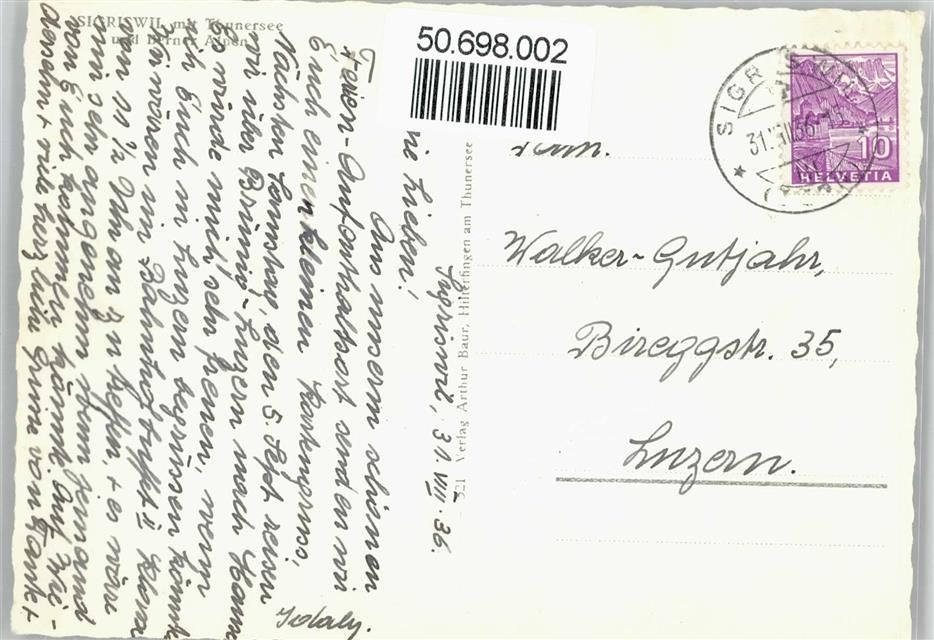 SIGRISWIL mit Thunersee
und Berner Alpen
50.698.002
SIGRISWIL
31.VIII.36
(BERN)
10
HELVETIA
521 Verlag Arthur Baur, Hilterfingen am Thunersee
Sigriswil, 31. VIII. 36.
Lieben!
Aus unserm schönen
Ferien-Aufenthaltsort senden wir
Euch einen kleinen Kartengruss,
Nächsten Samstag, den 5. Sept. reisen
wir über Brünig-Luzern nach Hause
Es würde mich sehr freuen, wenn
ich Euch in Luzern begrüssen könnte
Wir wären im Bahnhofbuffet II Klasse
von 11 ½ Uhr an z'treffen, + es wäre
mir sehr angenehm wenn jemand
von Euch kommen könnte. Auf Wie-
dersehn + viele herzliche Grüsse von Tante +
Idaly.
Fam.
Walker-Gutjahr,
Bireggstr. 35,
Luzern.